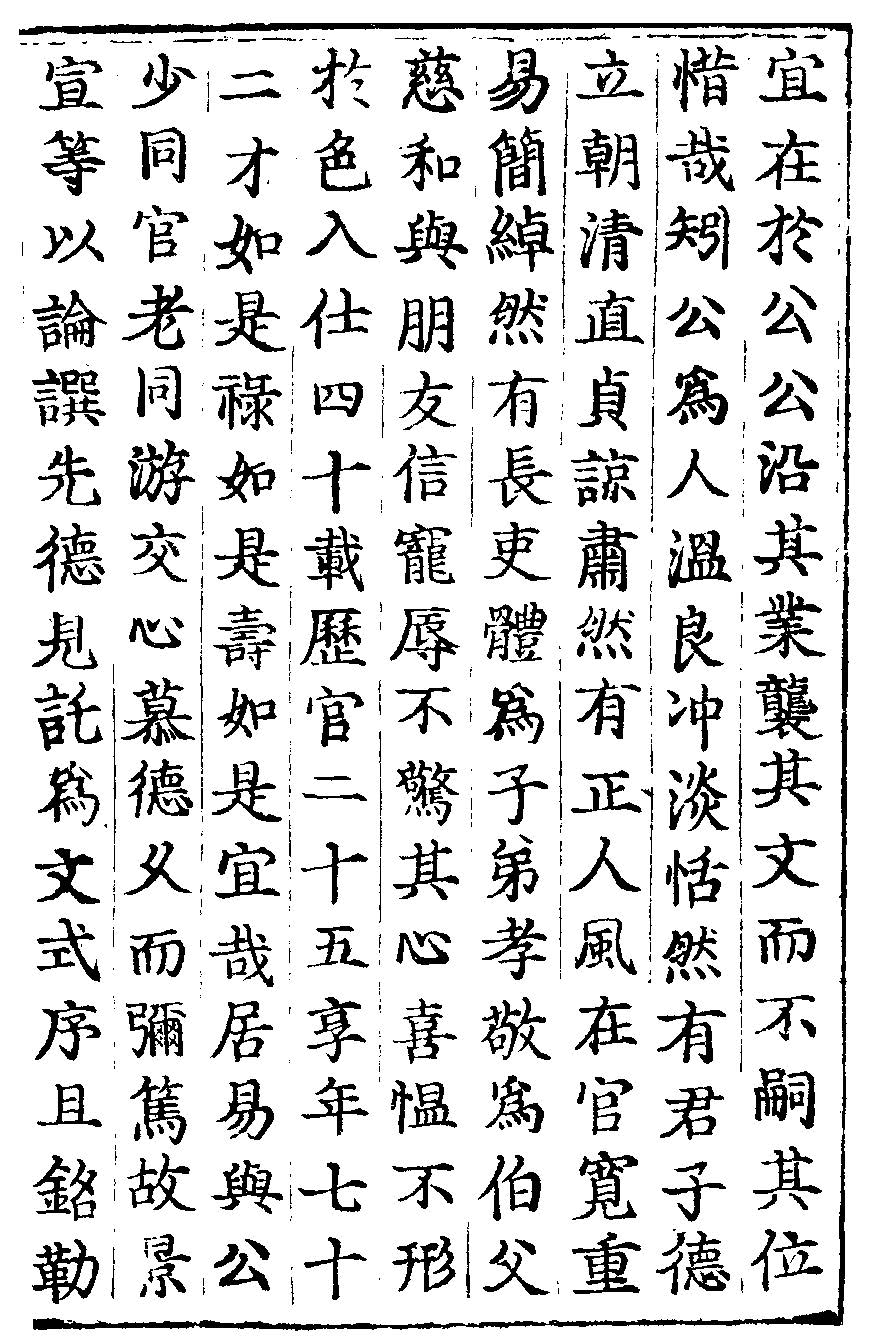 宜在於公公沿其業襲其文而不嗣其位
惜哉矧公爲人溫良冲淡恬然有君子德
立朝清直貞諒肅然有正人風在官寛重
易簡綽然有長吏體爲子弟孝敬爲伯父
慈和與朋友信寵辱不驚其心喜愠不形
扵色入仕四十載歷官二十五享年七十
二才如是祿如是壽如是宜哉居易與公
少同官老同游交心慕德乆而彌篤故景
宣等以論譔先德見託爲文式序且銘勒